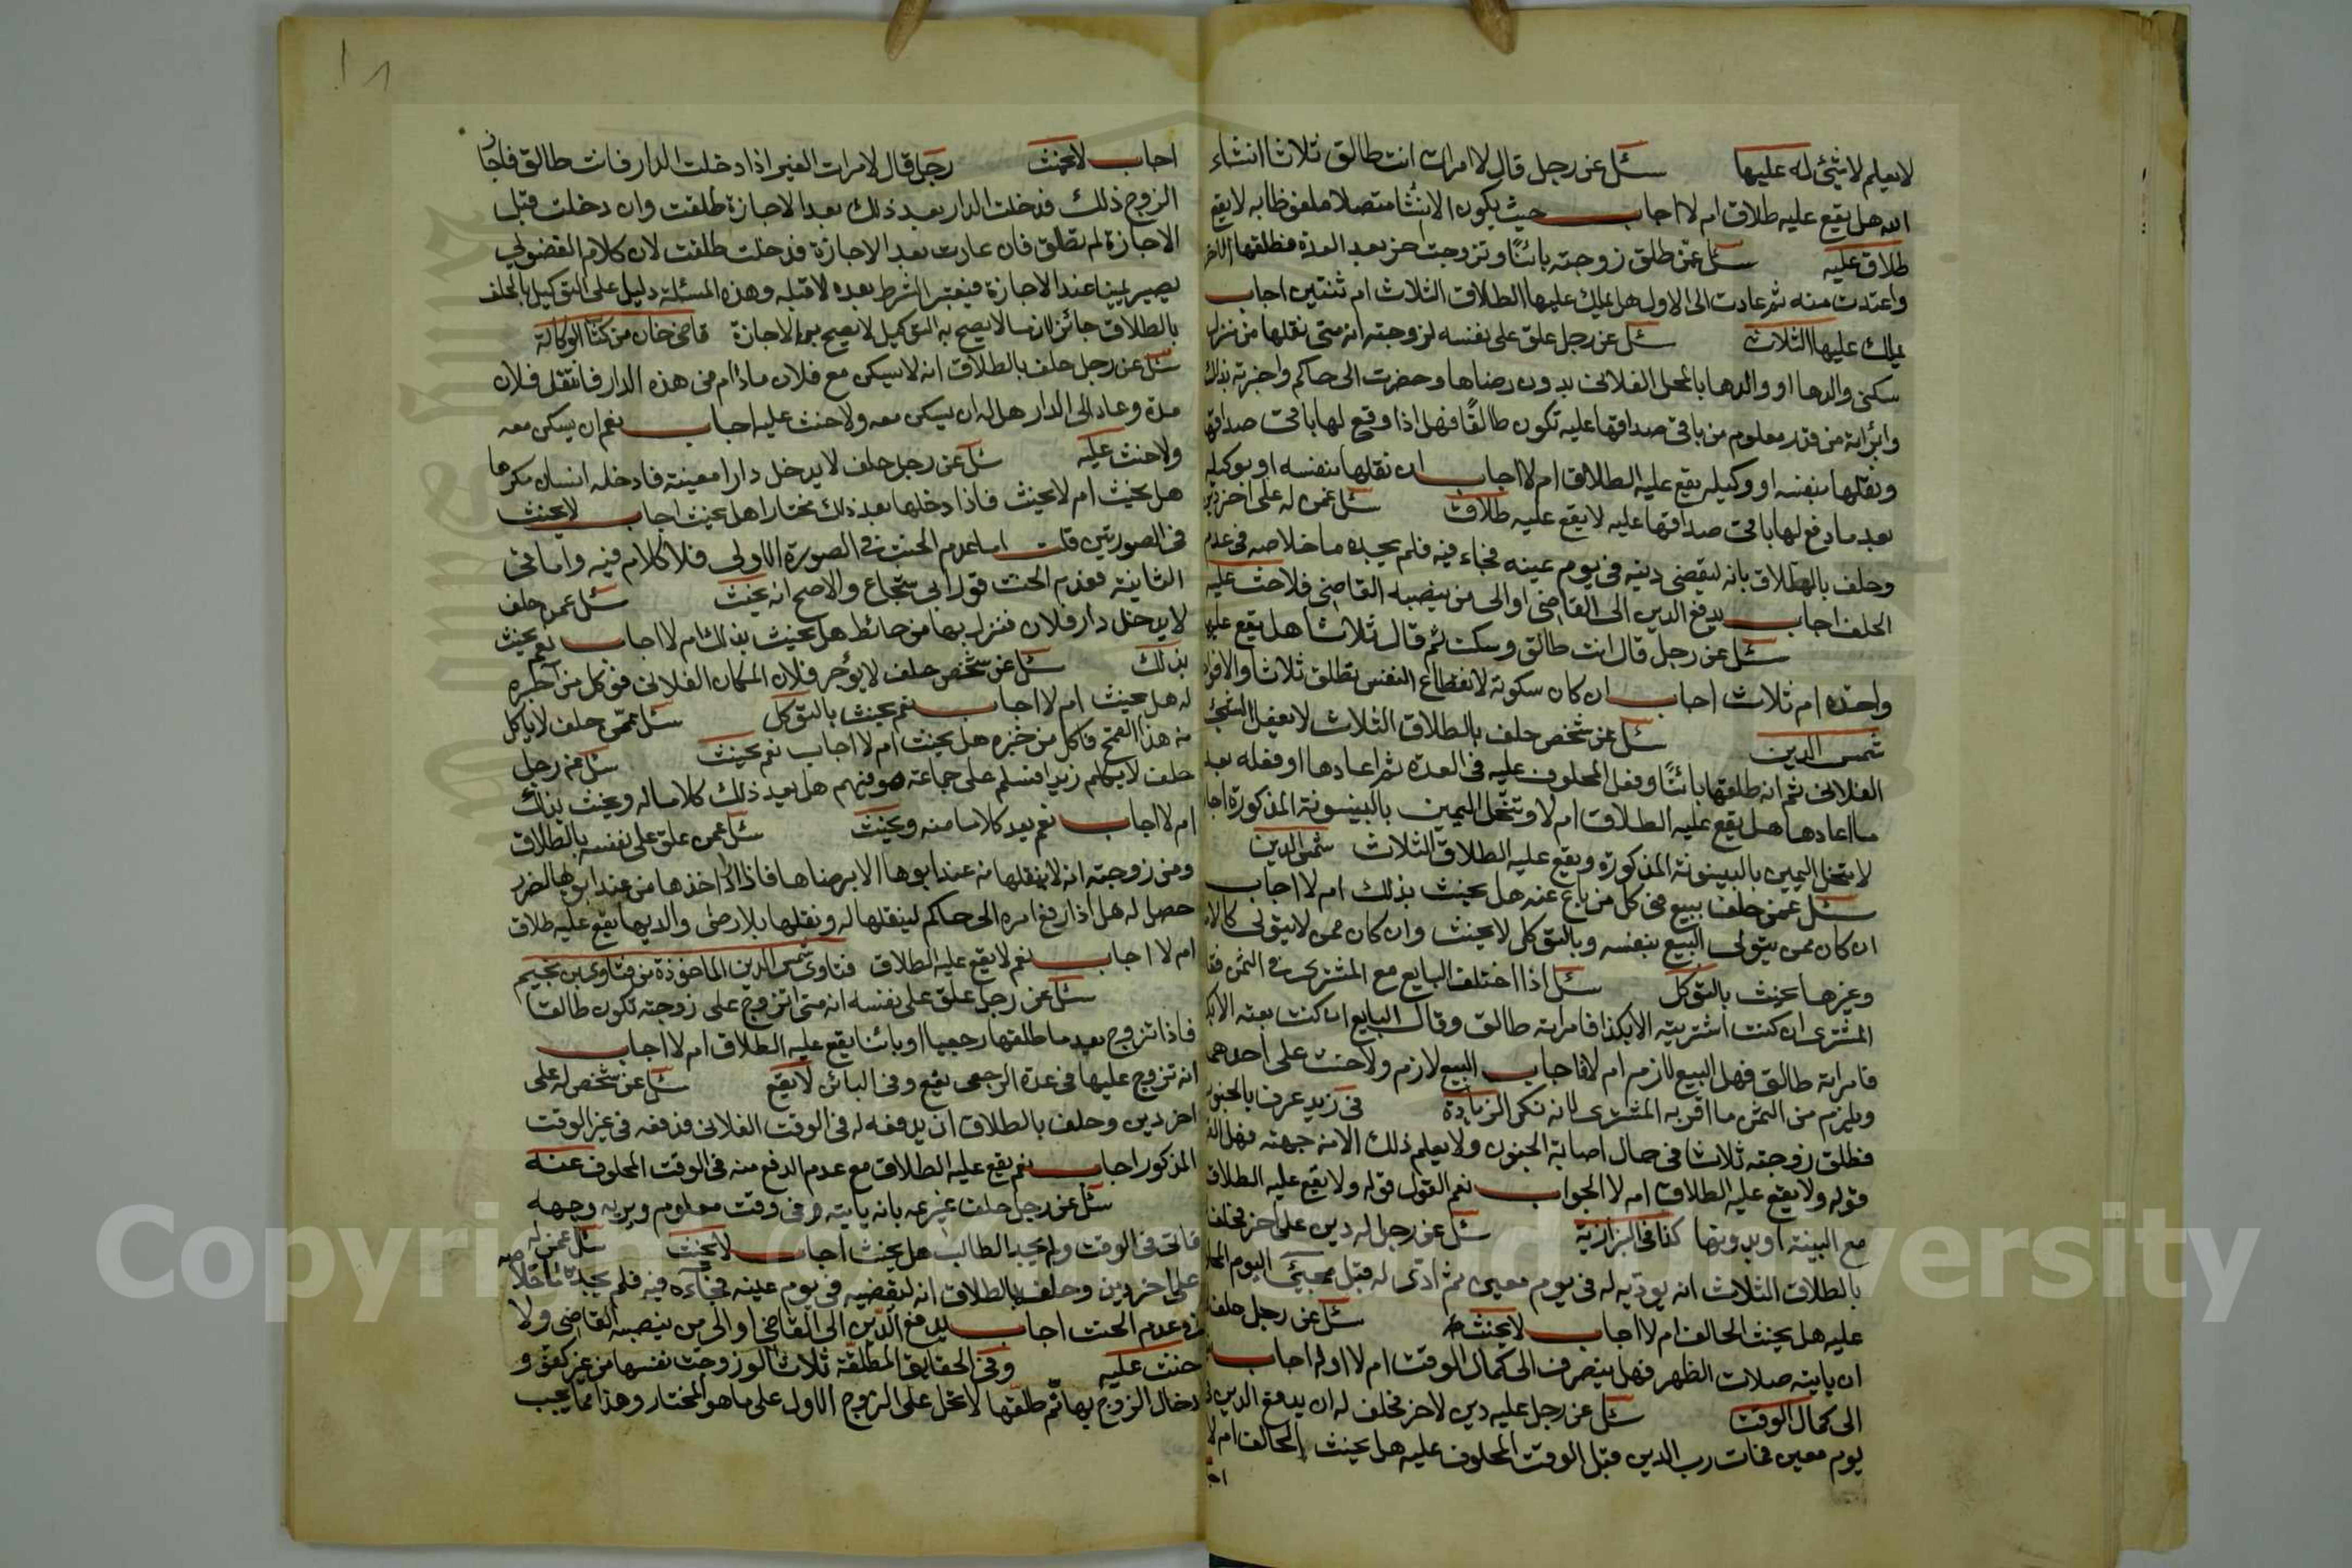 لا يعلم لا شيئ له عليها سئل عن رجل قال لامرات انت طالق ثلاثا انشاء
الله هل يقع عليه طلاق ام لا اجاب حيث يكون الانشا متصلا ملفوظا به لا يقع
طلاق عليه سئل عمن طلق زوجته بائنًا وتزوجت بعد العدة فطلقها الآخر
واعتدت منه ثم عادت الى الاول هل يملك عليها الطلاق الثلاث ام ثنتين اجاب
يملك عليها الثلاث سئل عن رجل علق على نفسه لزوجته انه متى نقلها من منزل
سكنى والدها او والدها بالمحل الفلانى بدون رضاها وحضرت الى حاكم واخبرته بذلك
وابرأته من قدر معلوم من باقى صداقها عليه تكون طالقًا فهل اذا وقع لها باقى صداقها
ونقلها بنفسه او وكيله يقع عليه الطلاق ام لا اجاب ان نقلها بنفسه او بوكيله
بعد ما دفع لها باقى صداقها عليه لا يقع عليه طلاق سئل عمن له على اخر دين
وحلف بالطلاق بانه ليقضى دينه فى يوم عينه فجاء فيه فلم يجده ما خلاصه فى عدم
الحلف اجاب يدفع الدين الى القاضى او الى من ينصبه القاضى فلا حنث عليه
سئل عن رجل قال انت طالق وسكت ثم قال ثلاثا هل يقع عليه
واحده ام ثلاث اجاب ان كان سكوته لانقطاع النفس تطلق ثلاثا والا فواحدة
شمس الدين سئل عن شخص حلف بالطلاق الثلاث لا يفعل الشيئ
الفلانى ثم انه طلقها بائنًا وفعل المحلوف عليه فى العدة ثم اعادها او فعله بعد
ما اعادها هل يقع عليه الطلاق ام لا وتنحل اليمين بالبينونة المذكورة اجاب
لا تنحل اليمين بالبينونة المذكورة ويقع عليه الطلاق الثلاث شمس الدين
سئل عمن حلف ببيع فى كل من باع عنه هل يحنث بذلك ام لا اجاب
ان كان ممن يتولى البيع بنفسه وبالتوكل لا يحنث وان كان ممن لا يتولى
وغيرها يحنث بالتوكل سئل اذا اختلف البايع مع المشترى فى الثمن فقال
المشترى ان كنت اشتريته الا بكذا فامراته طالق وقال البايع ان كنت بعته الا بكذا
فامراته طالق فهل البيع لازم ام لا فاجاب البيع لازم ولا حنث على احدهما
ويلزم من الثمن ما اقر به المشترى لانه نكر الزيادة فى زيد عرف بالجنون
فطلق زوجته ثلاثا فى حال اصابة الجنون ولا يعلم ذلك الا من جهته فهل القول
قوله ولا يقع عليه الطلاق ام لا الجواب نعم القول قوله ولا يقع عليه الطلاق
مع البينة او بدونها كذا فى البزازية سئل عن رجل له دين على اخر فحلف
بالطلاق الثلاث انه يوديه له فى يوم معين ثم ادى له قبل مجيئ اليوم المحلوف
عليه هل يحنث الحالف ام لا اجاب لا يحنث سئل عن رجل حلف
ان ياتيه صلات الظهر فهل ينصرف الى كمال الوقت ام لا اوله اجاب
الى كمال الوقت سئل عن رجل عليه دين لاخر فحلف له ان يدفع الدين
يوم معين فمات رب الدين قبل الوقت المحلوف عليه هل يحنث الحالف ام لا
اجاب لا يحنث رجل قال لامرات الغير اذا دخلت الدار فانت طالق فاجاز
الزوج ذلك فدخلت الدار بعد ذلك بعد الاجازة طلقت وان دخلت قبل
الاجازة لم تطلق فان عادت بعد الاجازة فدخلت طلقت لان كلام الفضولى
يصير يمينا عند الاجازة فيعتبر الشرط بعده لا قبله وهذه المسئلة دليل على التوكيل بالحلف
بالطلاق جائز لان ما لا يصح به التوكيل لا يصح به الاجازة قاضى خان من كتاب الوكالة
سئل عن رجل حلف بالطلاق انه لا يسكن مع فلان مادام فى هذه الدار فانتقل فلان
مدة وعاد الى الدار هل له ان يسكن معه ولا حنث عليه اجاب نعم ان يسكن معه
ولا حنث عليه سئل عن رجل حلف لا يدخل دارا معينة فادخله انسان مكرها
هل يحنث ام لا يحنث فاذا دخلها بعد ذلك مختارا هل يحنث اجاب لا يحنث
فى الصورتين قلت اما عدم الحنث فى الصورة الاولى فلا كلام فيه واما فى
الثانية فعدم الحنث قول ابى شجاع والاصح انه يحنث سئل عمن حلف
لا يدخل دار فلان فنزل بها من حائط هل يحنث بذلك ام لا اجاب نعم يحنث
بذلك سئل عن شخص حلف لا يؤجر فلان المكان الفلانى فوكل من آجره
له هل يحنث ام لا اجاب نعم يحنث بالتوكل سئل عمن حلف لا ياكل
من هذا القمح فاكل من خبزه هل يحنث ام لا اجاب نعم يحنث سئل عن رجل
حلف لا يكلم زيدا فسلم على جماعة هو فيهم هل يعد ذلك كلاما له ويحنث بذلك
ام لا اجاب نعم يعد كلاما منه ويحنث سئل عمن علق على نفسه بالطلاق
ومن زوجته انه لا ينقلها من عند ابوها الا برضاها فاذا اراد اخذها من عند ابوها لضرر
حصل له هل اذا رفع امره الى حاكم لينقلها له ونقلها بلا رضى والديها يقع عليه طلاق
ام لا اجاب نعم لا يقع عليه الطلاق فتاوى شمس الدين الماخوذة من فتاوى بن نجيم
سئل عن رجل علق على نفسه انه متى اتزوج على زوجته تكون طالقا
فاذا تزوج بعد ما طلقها رجعيا او بائنا يقع عليه الطلاق ام لا اجاب
انه تزوج عليها فى عدة الرجعى يقع وفى البائن لا يقع سئل عن شخص له على
اخر دين وحلف بالطلاق ان يدفعه له فى الوقت الفلانى فدفعه فى غير الوقت
المذكور اجاب نعم يقع عليه الطلاق مع عدم الدفع منه فى الوقت المحلوف عنه
سئل عن رجل حلف غريمه بانه ياتيه فى وقت معلوم ويريه وجهه
فاتى فى الوقت ولم يجد الطالب هل يحنث اجاب لا يحنث سئل عمن له
على اخر دين وحلف بالطلاق انه ليقضيه فى يوم عينه فجآءه فيه فلم يجده ما خلاصه
فى عدم الحنث اجاب يدفع الدين الى القاضى او الى من ينصبه القاضى ولا
حنث عليه وفى الحقايق المطلقة ثلاث لو زوجت نفسها من غير كفؤ و
دخال الزوج بها ثم طلقها لا تحل على الزوج الاول على ما هو المختار وهذا مما يجب